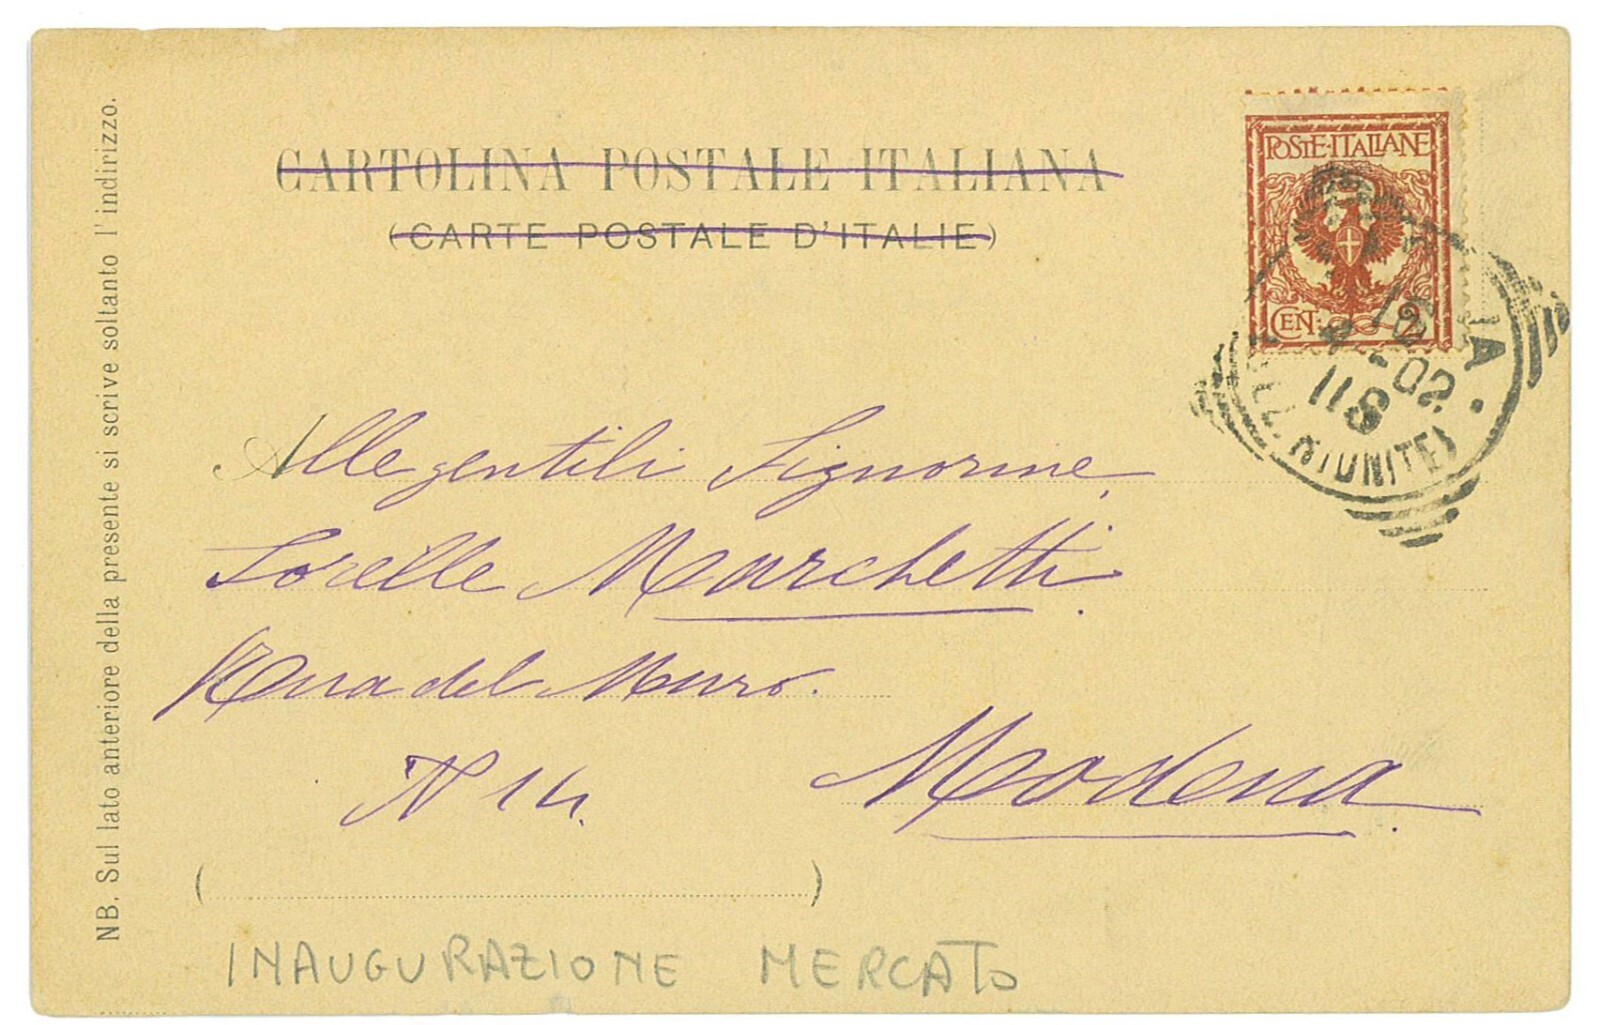 CARTOLINA POSTALE ITALIANA
(CARTE POSTALE D'ITALIE)
POSTE·ITALIANE
CEN. 2
02
11 S
RIUNITE)
Alle gentili Signorine
Sorelle Marchetti.
Rua del Muro.
N 14.
Modena.
INAUGURAZIONE MERCATO
NB. Sul lato anteriore della presente si scrive soltanto l'indirizzo.